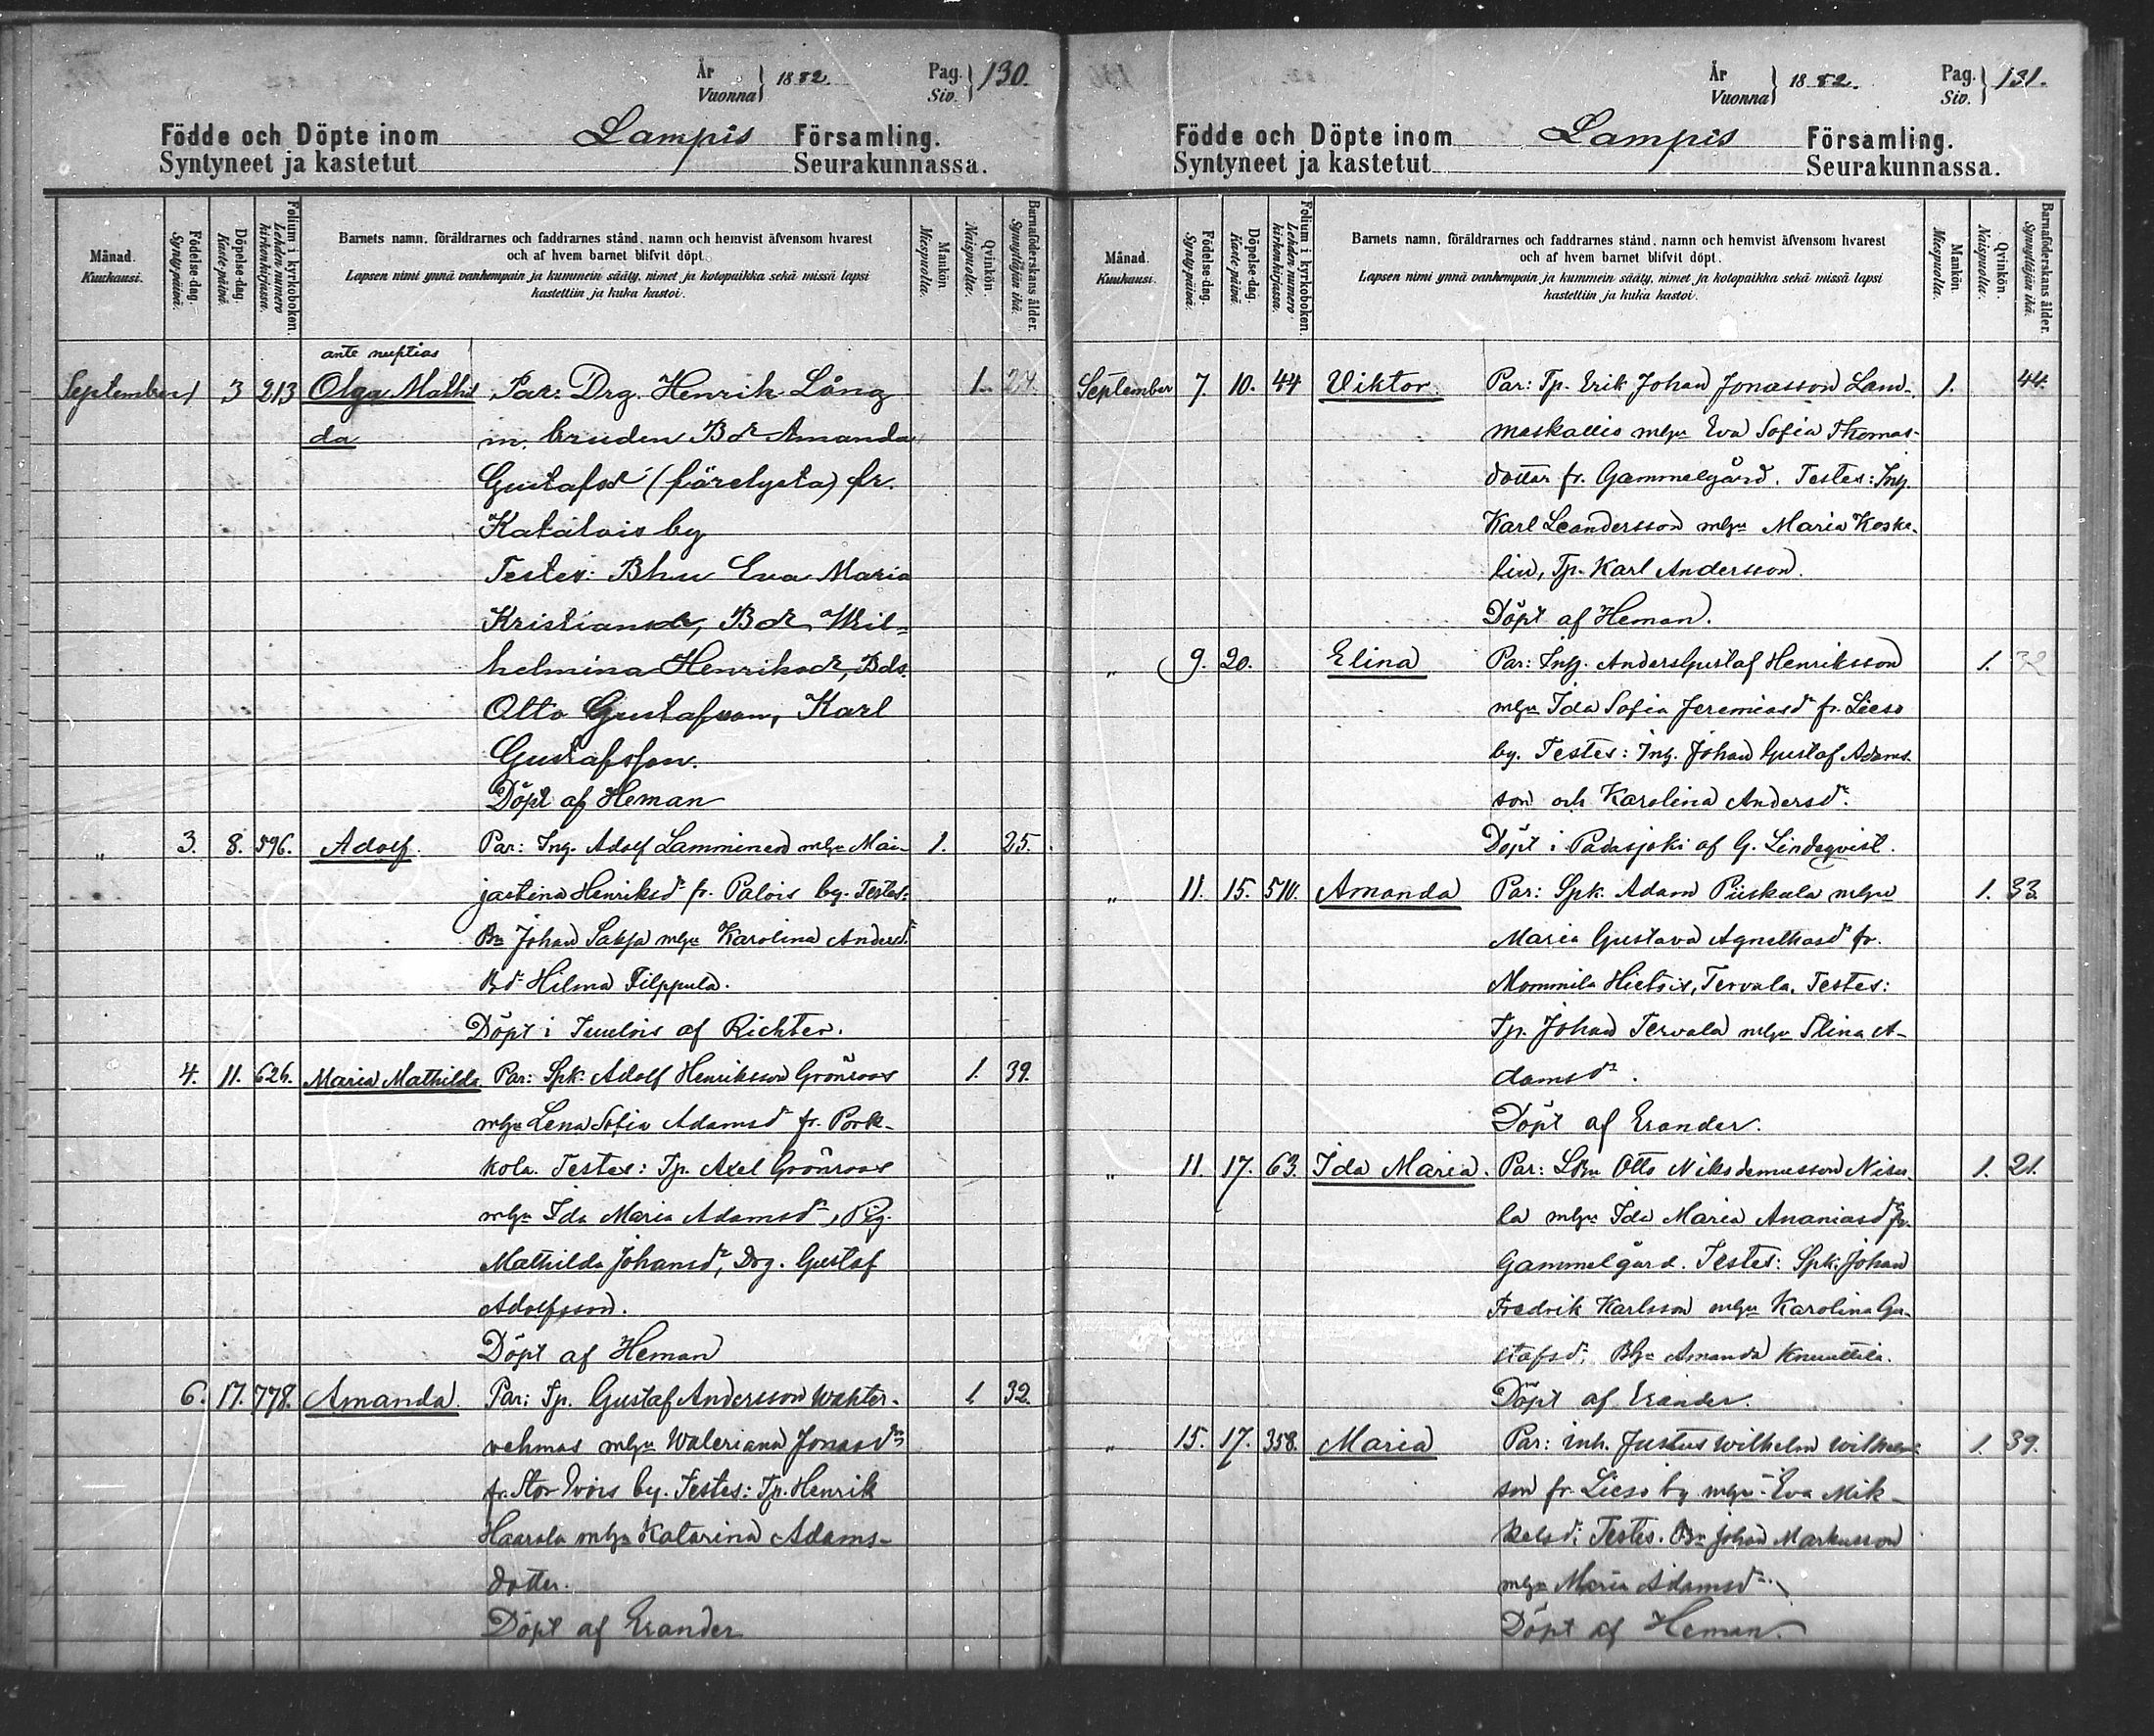 År
Vuonna } 1882. Pag.
Siv. } 130.
Födde och Döpte inom Lampis Församling.
Syntyneet ja kastetut Seurakunnassa.
Månad. Kuukausi.
Födelse-dag. Synty-päivä.
Döpelse-dag. Kaste-päivä.
Folium i kyrkoboken. Lehden numero kirkonkirjassa.
Barnets namn, föräldrarnes och faddrarnes stånd, namn och hemvist äfvensom hvarest
och af hvem barnet blifvit döpt.
Lapsen nimi ynnä vanhempain ja kummein sääty, nimet ja kotopaikka sekä missä lapsi
kastettiin ja kuka kastoi.
Mankön. Miespuolia.
Qvinkön. Naispuolia.
Barnaföderskans ålder. Synnyttäjän ikä.
ante nuptias
September 1 3 213 Olga Mathil Par: Drg. Henrik Lång 1. 24.
da m. bruden Bdr Amanda
Gustafsd (förelysta) fr.
Katalois by
Testes: Bhu Eva Maria
Kristiansdr, Bdr Wil-
helmina Henriksdr, Bds.
Otto Gustafsson, Karl
Gustafsson.
Döpt af Heman
" 3. 8. 596. Adolf. Par: Ing. Adolf Lamminen mhu Mai- 1. 25.
jastina Henriksdr fr. Palois by. Testes:
Bn Johan Sakja mhu Karolina Andersdr
Bdr Hilma Filppula.
Döpt i Tuulois af Richter.
4. 11. 626. Maria Mathilda Par: Spk. Adolf Henriksson Grönroos 1. 39.
mhu Lena Sofia Adamsdr fr. Pork-
kola. Testes: Tp. Axel Grönroos
mhu Ida Maria Adamsdr, Pig.
Mathilda Johansdr, Drg. Gustaf
Adolfsson.
Döpt af Heman
6. 17. 778. Amanda. Par: Tp. Gustaf Andersson Wahter- 1. 32.
vehmas mhu Waleriana Jonasdr
fr. Stor Evois by. Testes: Tp. Henrik
Haarala mhu Katarina Adams-
dotter.
Döpt af Erander
År
Vuonna } 1882. Pag.
Siv. } 131.
Födde och Döpte inom Lampis Församling.
Syntyneet ja kastetut Seurakunnassa.
Månad. Kuukausi.
Födelse-dag. Synty-päivä.
Döpelse-dag. Kaste-päivä.
Folium i kyrkoboken. Lehden numero kirkonkirjassa.
Barnets namn, föräldrarnes och faddrarnes stånd, namn och hemvist äfvensom hvarest
och af hvem barnet blifvit döpt.
Lapsen nimi ynnä vanhempain ja kummein sääty, nimet ja kotopaikka sekä missä lapsi
kastettiin ja kuka kastoi.
Mankön. Miespuolia.
Qvinkön. Naispuolia.
Barnaföderskans ålder. Synnyttäjän ikä.
September 7. 10. 44 Viktor. Par: Tp. Erik Johan Jonasson Lam- 1. 44.
maskallio mhu Eva Sofia Thomas-
dotter fr. Gammelgård. Testes: Ing.
Karl Leandersson mhu Maria Koske-
lin, Tp. Karl Andersson.
Döpt af Heman.
" 9. 20. Elina Par: Ing. Anders Gustaf Henriksson 1. 32
mhu Ida Sofia Jeremiasdr fr. Lieso
by. Testes: Ing. Johan Gustaf Adams-
son och Karolina Andersdr.
Döpt i Padasjoki af G. Lindeqvist.
" 11. 15. 510. Amanda Par: Spk. Adam Piiskala mhu 1. 33.
Maria Gustava Agnethasdr fr.
Mommila Hietois, Tervala. Testes:
Tp. Johan Tervala mhu Stina A-
damsdr.
Döpt af Erander.
" 11. 17. 63. Ida Maria. Par: Otto Nikodemusson Niku- 1. 21.
la mhu Ida Maria Ananiasdr fr.
Gammelgård. Testes: Spk. Johan
Fredrik Karlsson mhu Karolina Gu-
stafsdr, Amanda Knuuttila.
Döpt af Erander.
" 15. 17. 358. Maria Par: Inh. Justus Wilhelm Wilhelms- 1. 39.
son fr. Lieso by mhu Eva Mik-
kelsdr. Testes. Bn Johan Markusson
mhu Maria Adamsdr.
Döpt af Heman.